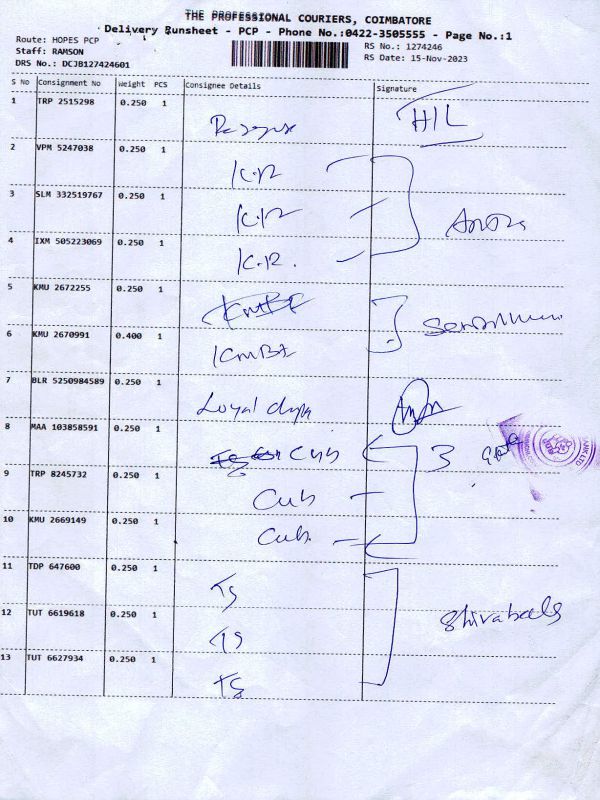 THE PROFESSIONAL COURIERS, COIMBATORE
Delivery Runsheet - PCP - Phone No.:0422-3505555 - Page No.:1
Route: HOPES PCP
Staff: RAMSON
DRS No.: DCJB127424601
RS No.: 1274246
RS Date: 15-Nov-2023
S No Consignment No Weight PCS Consignee Details Signature
1 TRP 2515298 0.250 1
HIL
2 VPM 5247038 0.250 1
K.R
3 SLM 332519767 0.250 1
K.R
4 IXM 505223069 0.250 1
K.R.
5 KMU 2672255 0.250 1
6 KMU 2670991 0.400 1
KMBI
7 BLR 5250984589 0.250 1
Loyal
8 MAA 103858591 0.250 1
Cub 3
9 TRP 8245732 0.250 1
Cub
10 KMU 2669149 0.250 1
Cub.
11 TDP 647600 0.250 1
TS
12 TUT 6619618 0.250 1
TS
13 TUT 6627934 0.250 1
TS